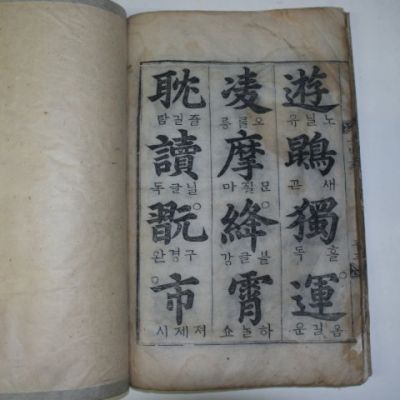 遊
노닐유
鵾
새곤
獨
홀독
運
옴길운
凌
오를릉
摩
문질마
絳
불글강
霄
하늘쇼
耽
즐길탐
讀
닐글독
翫
구경완
市
져제시